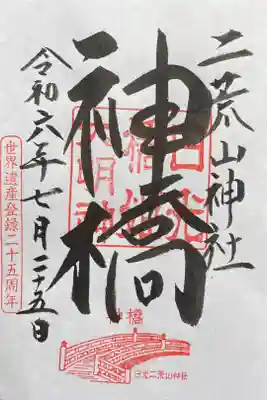 二荒山神社
神橋
日光
大明神
令和六年七月二十五日
世界遺産登録二十五周年
神橋
日光二荒山神社